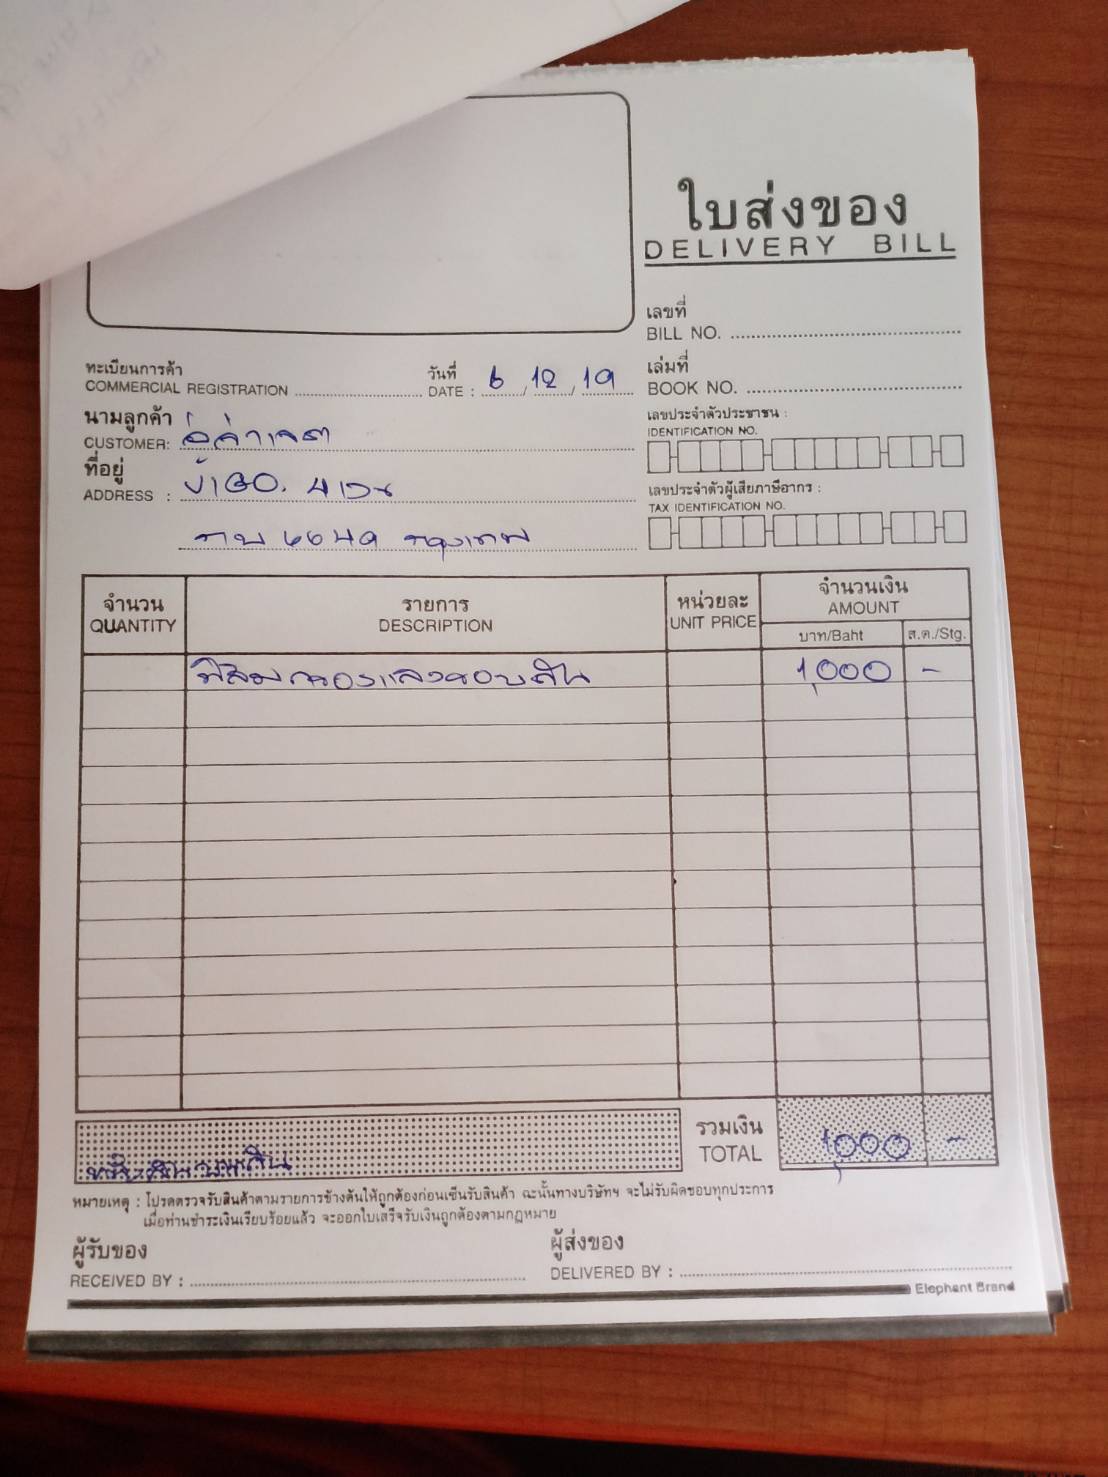 ใบส่งของ
DELIVERY BILL
เลขที่
BILL NO.
ทะเบียนการค้า
COMMERCIAL REGISTRATION
วันที่
DATE : 6 / 12 / 19
เล่มที่
BOOK NO.
นามลูกค้า
CUSTOMER:
เลขประจำตัวประชาชน :
IDENTIFICATION NO.
ที่อยู่
ADDRESS :
เลขประจำตัวผู้เสียภาษีอากร :
TAX IDENTIFICATION NO.
กรุงเทพ
จำนวน
QUANTITY
รายการ
DESCRIPTION
หน่วยละ
UNIT PRICE
จำนวนเงิน
AMOUNT
บาท/Baht
ส.ต./Stg.
ฟิล์มกรองแสงรอบคัน 1,000 -
รวมเงิน
TOTAL 1,000 -
หนึ่งพันบาทถ้วน
หมายเหตุ : โปรดตรวจรับสินค้าตามรายการข้างต้นให้ถูกต้องก่อนเซ็นรับสินค้า ฉะนั้นทางบริษัทฯ จะไม่รับผิดชอบทุกประการ
เมื่อท่านชำระเงินเรียบร้อยแล้ว จะออกใบเสร็จรับเงินถูกต้องตามกฎหมาย
ผู้รับของ
RECEIVED BY :
ผู้ส่งของ
DELIVERED BY :
Elephant Brand